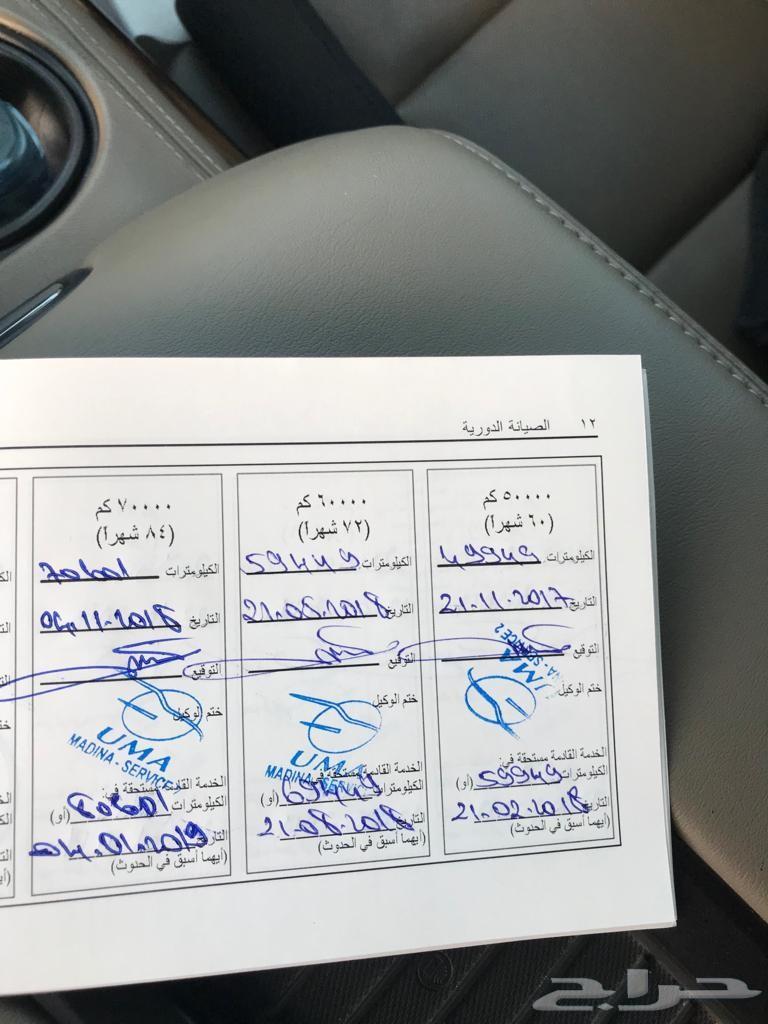 ١٢ الصيانة الدورية
٥٠٠٠٠ كم
(٦٠ شهراً)
الكيلومترات 49949
التاريخ 21-11-2017
التوقيع
ختم الوكيل
UMA
الخدمة القادمة مستحقة في:
الكيلومترات 59949
التاريخ 21-02-2018
(أيهما أسبق في الحدوث)
٦٠٠٠٠ كم
(٧٢ شهراً)
الكيلومترات 59449
التاريخ 21-05-2018
التوقيع
ختم الوكيل
UMA
MADINA-SERVICE
الخدمة القادمة مستحقة في:
الكيلومترات 69449 (أو)
التاريخ 21-08-2018
(أيهما أسبق في الحدوث)
٧٠٠٠٠ كم
(٨٤ شهراً)
الكيلومترات
التاريخ 04-11-2018
التوقيع
ختم الوكيل
UMA
MADINA-SERVICE
الخدمة القادمة مستحقة في:
الكيلومترات (أو)
التاريخ 04-01-2019
(أيهما أسبق في الحدوث)
حراج